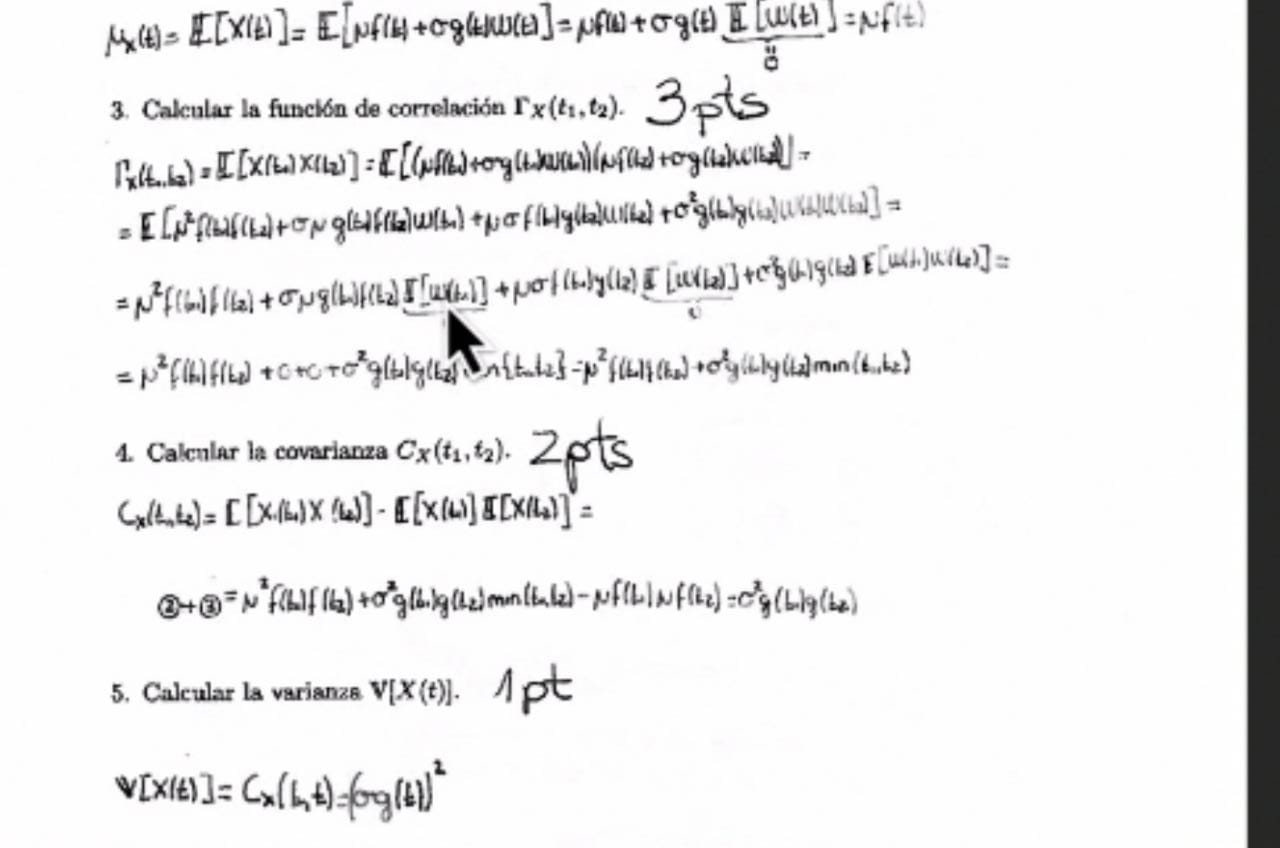 μ_x(t) = 𝔼[X(t)] = 𝔼[μf(t)+σg(t)W(t)] = μf(t)+σg(t) 𝔼[W(t)] = μf(t)
=0
3. Calcular la función de correlación Γ_X(t₁,t₂). 3pts
Γ_x(t₁,t₂) = 𝔼[X(t₁)X(t₂)] = 𝔼[(μf(t₁)+σg(t₁)W(t₁))(μf(t₂)+σg(t₂)W(t₂))] =
= 𝔼[μ²f(t₁)f(t₂)+σμg(t₁)f(t₂)W(t₁)+μσf(t₁)g(t₂)W(t₂)+σ²g(t₁)g(t₂)W(t₁)W(t₂)] =
= μ²f(t₁)f(t₂)+σμg(t₁)f(t₂)𝔼[W(t₁)]+μσf(t₁)g(t₂)𝔼[W(t₂)]+σ²g(t₁)g(t₂)𝔼[W(t₁)W(t₂)] =
0
= μ²f(t₁)f(t₂)+0+0+σ²g(t₁)g(t₂) {t₁,t₂} = μ²f(t₁)f(t₂)+σ²g(t₁)g(t₂)min(t₁,t₂)
4. Calcular la covarianza C_X(t₁,t₂). 2pts
C_x(t₁,t₂) = 𝔼[X(t₁)X(t₂)] - 𝔼[X(t₁)]𝔼[X(t₂)] =
②+③ = μ²f(t₁)f(t₂)+σ²g(t₁)g(t₂)min(t₁,t₂)-μf(t₁)μf(t₂) = σ²g(t₁)g(t₂)
5. Calcular la varianza 𝕍[X(t)]. 1pt
𝕍[X(t)] = C_x(t,t) = (σg(t))²